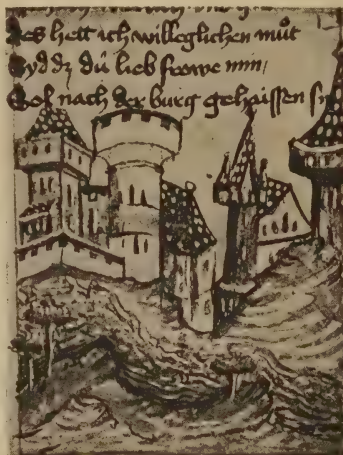 des hett ich willeglichen můt
Syd dz dů lieb frowe min /
Sol nach der burg gehaissen s